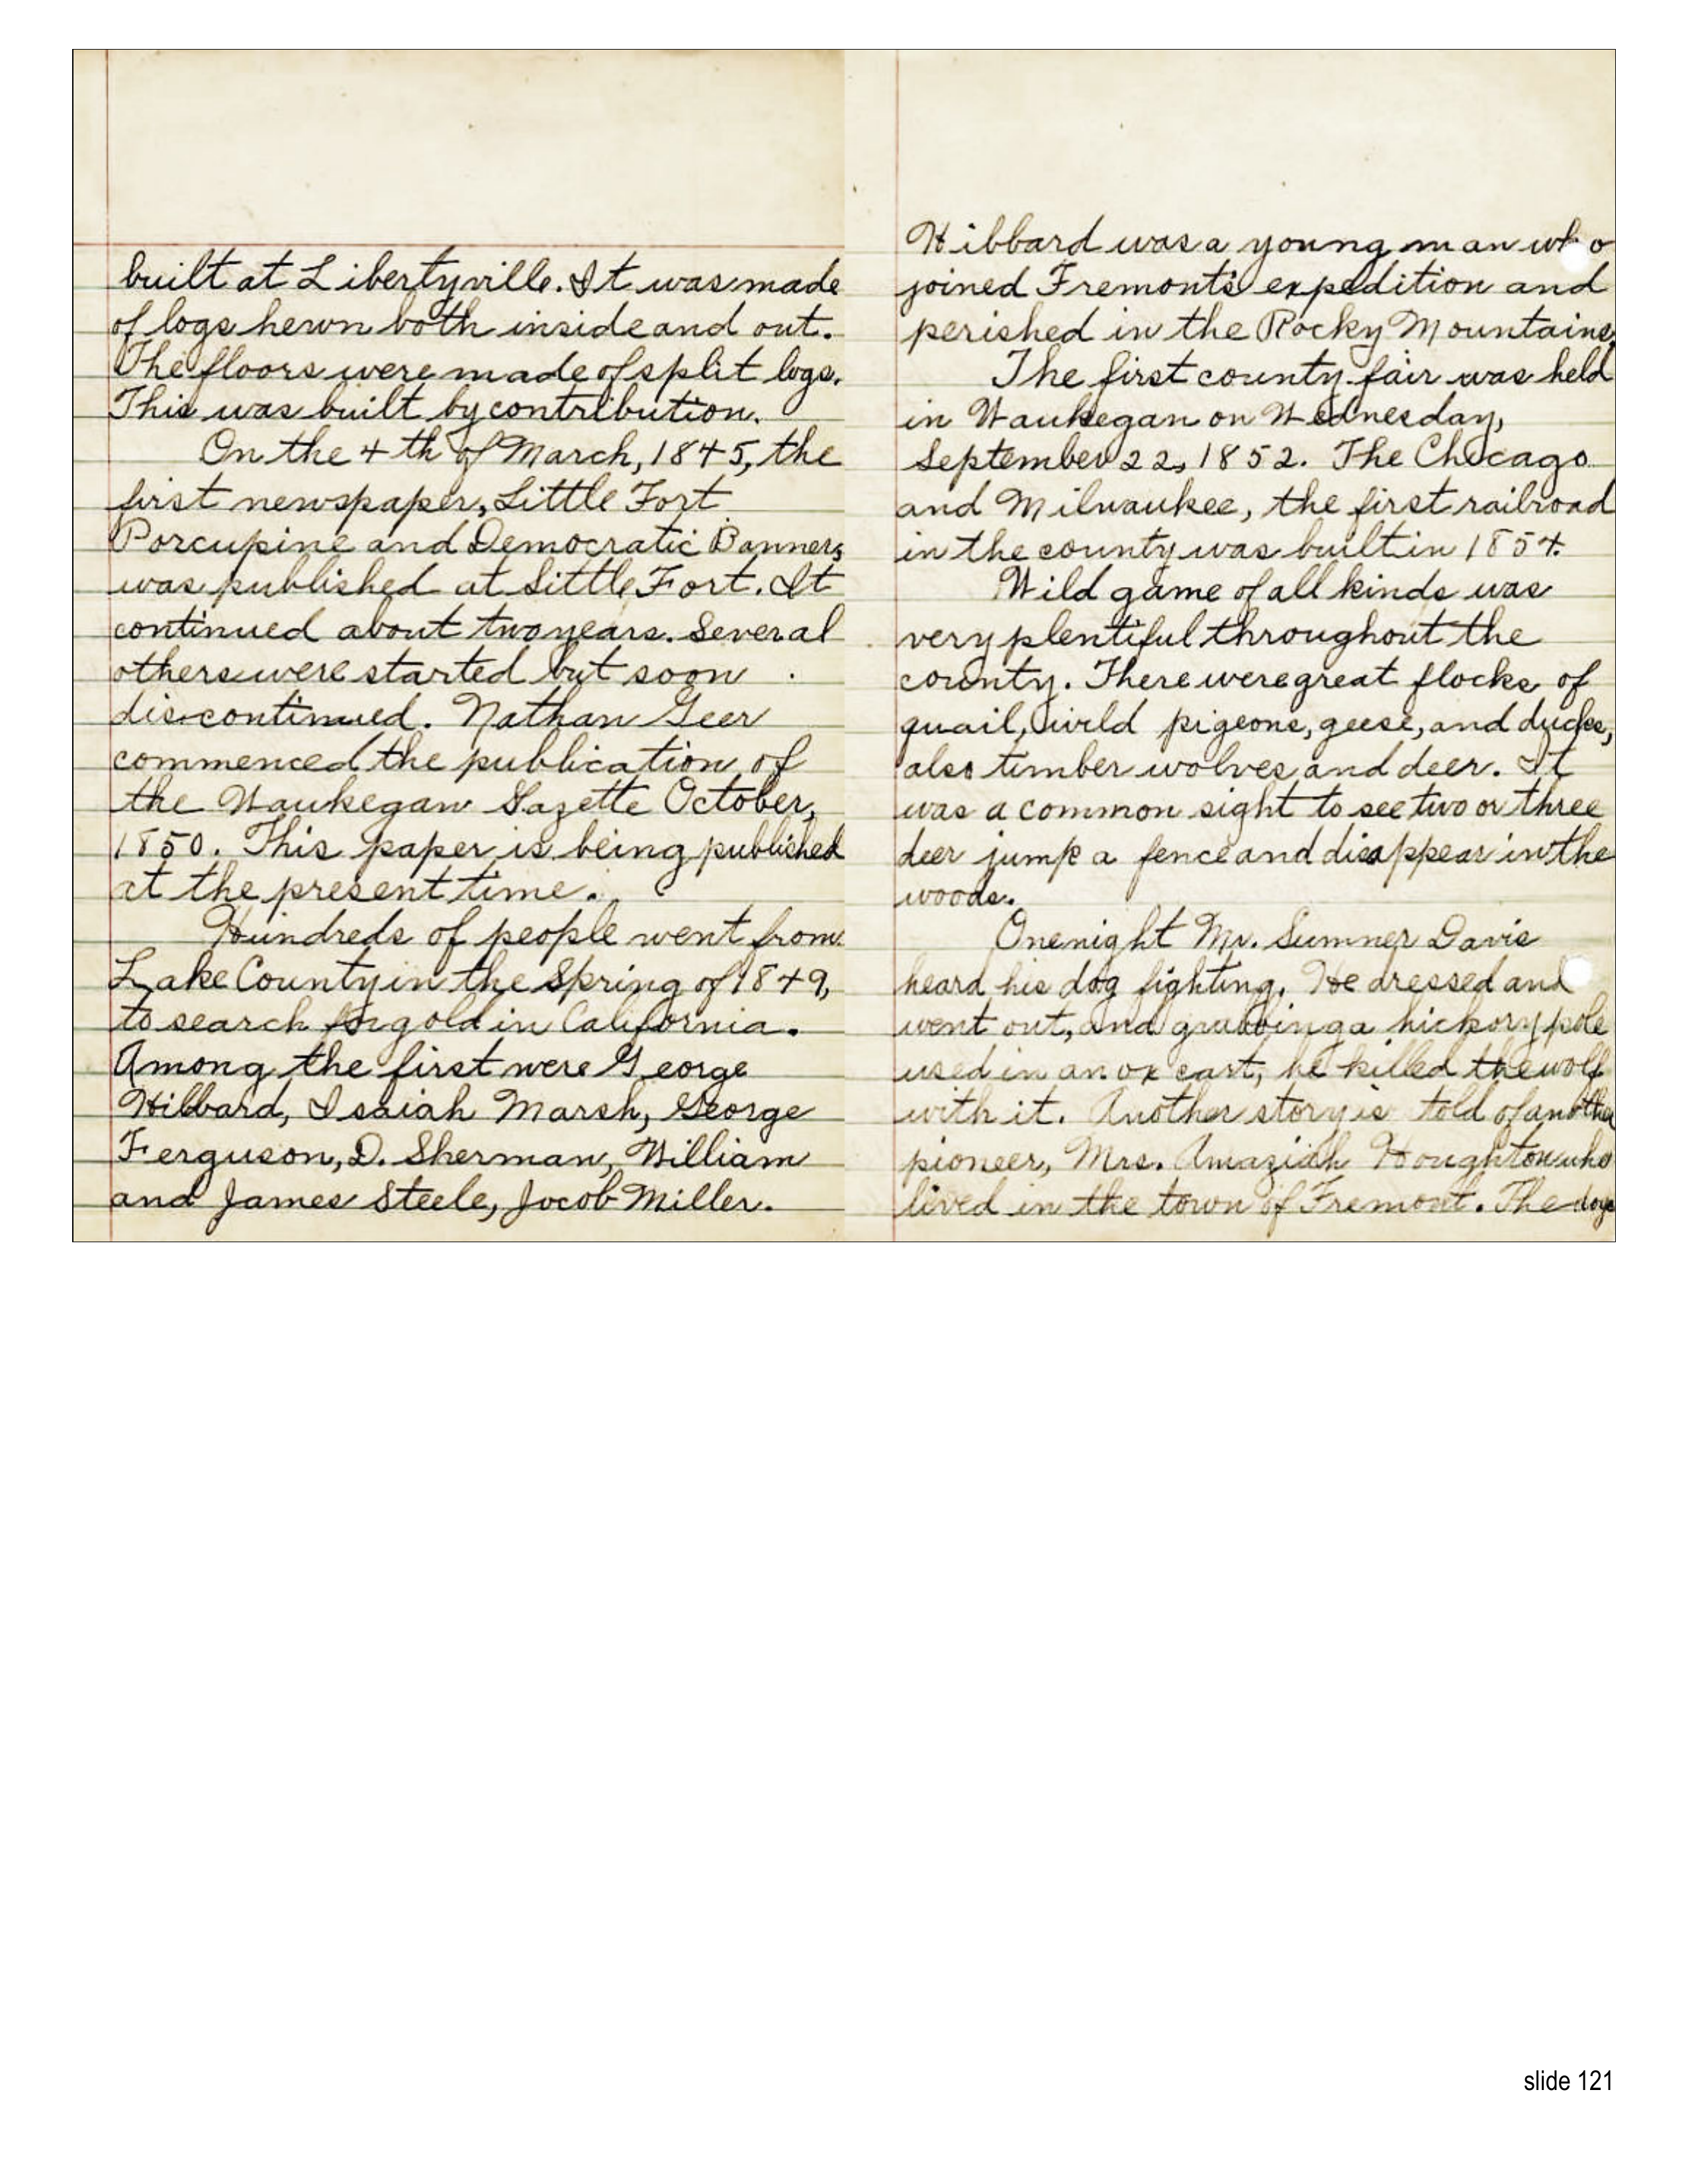 built at Libertyville. It was made
of logs hewn both inside and out.
The floors were made of split logs.
This was built by contribution.
On the 4th of March, 1845, the
first newspaper, Little Fort
Porcupine and Democratic Banner,
was published at Little Fort. It
continued about two years. Several
others were started but soon
discontinued. Nathan Geer
commenced the publication of
the Waukegan Gazette October,
1850. This paper is being published
at the present time.
Hundreds of people went from
Lake County in the Spring of 1849,
to search for gold in California.
Among the first were George
Hibbard, Isaiah Marsh, George
Ferguson, D. Sherman, William
and James Steele, Jocob Miller.
Hibbard was a young man who
joined Fremont's expedition and
perished in the Rocky Mountains.
The first county fair was held
in Waukegan on Wednesday,
September 22, 1852. The Chicago
and Milwaukee, the first railroad
in the county was built in 1854.
Wild game of all kinds was
very plentiful throughout the
county. There were great flocks of
quail, wild pigeons, geese, and ducks,
also timber wolves and deer. It
was a common sight to see two or three
deer jump a fence and disappear in the
woods.
One night Mr. Sumner Davis
heard his dog fighting. He dressed and
went out, and grabbing a hickory pole
used in an ox cart, he killed the wolf
with it. Another story is told of another
pioneer, Mrs. Amaziah Houghton who
lived in the town of Fremont. The dogs
slide 121